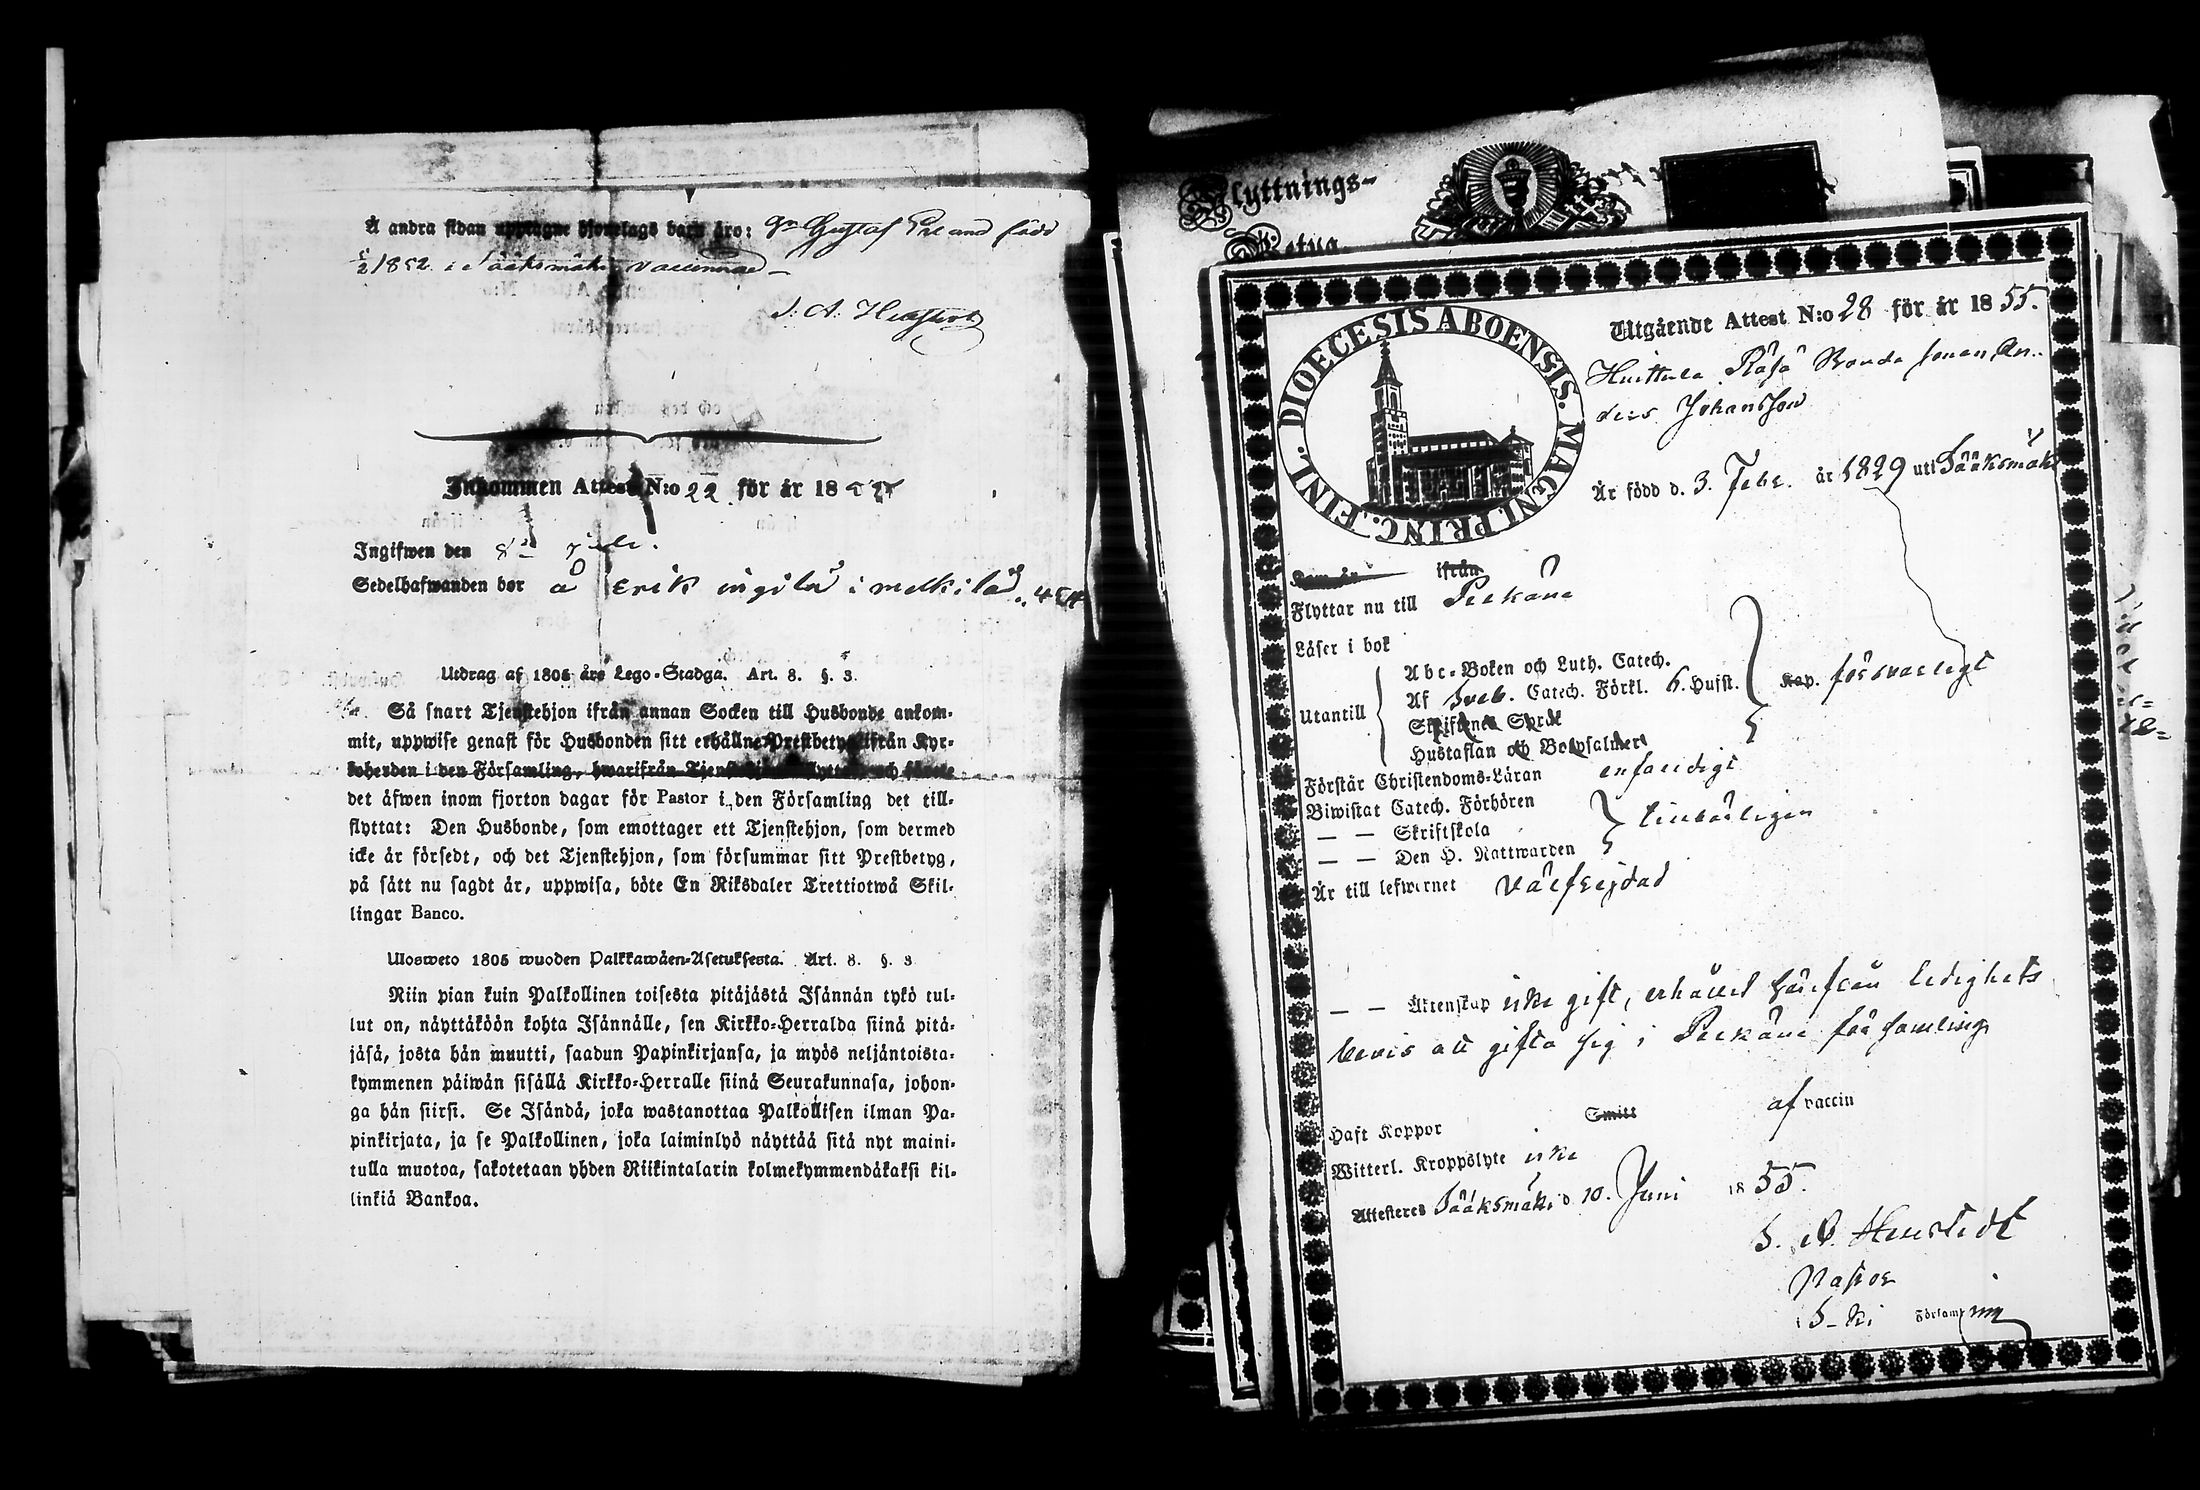 Å andra sidan upptagne hjonelags barn äro: Gustaf född
1852 i Sääksmäki vaccinerad
Inkommen Attest N:o 22 för år 18
Ingifwen den 8
Sedelhafwanden bor å Erik i
Utdrag af 1805 års Lego-Stadga. Art. 8. §. 3.
Så snart Tjenstehjon ifrån annan Socken till Husbonde ankom-
mit, uppwise genast för Husbonden sitt erhållne Prestbetyg ifrån Kyr-
koherden i den Församling, hwarifrån
det äfwen inom fjorton dagar för Pastor i den Församling det till-
flyttat: Den Husbonde, som emottager ett Tjenstehjon, som dermed
icke är försedt, och det Tjenstehjon, som försummar sitt Prestbetyg,
på sätt nu sagdt är, uppwisa, böte En Riksdaler Trettiotwå Skil-
lingar Banco.
Ulosweto 1805 wuoden Palkkawäen-Asetuksesta. Art. 8. §. 3
Niin pian kuin Palkollinen toisesta pitäjästä Isännän tykö tul-
lut on, näyttäköön kohta Isännälle, sen Kirkko-Herralda siinä pitä-
jäsä, josta hän muutti, saadun Papinkirjansa, ja myös neljäntoista-
kymmenen päiwän sisällä Kirkko-Herralle siinä Seurakunnasa, johon-
ga hän siirsi. Se Isändä, joka wastanottaa Palkollisen ilman Pa-
pinkirjata, ja se Palkollinen, joka laiminlyö näyttää sitä nyt maini-
tulla muotoa, sakotetaan yhden Riikintalarin kolmekymmendäkaksi kil-
linkiä Bankoa.
Flyttnings-
Betyg
DIOECESIS ABOENSIS. MAGNI. PRINC. FINL.
Utgående Attest N:o 28 för år 1855.
Huittula Bonde sonen An-
ders Johansson
Är född d. 3. Febr. år 1829 uti Sääksmäki
Kom år ifrån
Flyttar nu till Pelkäne
Läser i bok
Utantill
Abc-Boken och Luth. Catech.
Af Sveb. Catech. Förkl. 6. Hufst. Kap. försvarligt
Skriftenes Språk
Hustaflan och Botpsalmer
Förstår Christendoms-Läran enfaldigt
Biwistat Catech. Förhören
— — Skriftskola
— — Den H. Nattwarden
Är till lefwernet välfrejdad
— — Äktenskap icke gift, erhåller härifrån ledighets
bevis att gifta sig i Pelkäne församling
Haft Koppor Smitt af vaccin
Witterl. Kroppslyte icke
Attesteras Sääksmäki d. 10. Juni 1855.
Pastor
i S-ki Församling